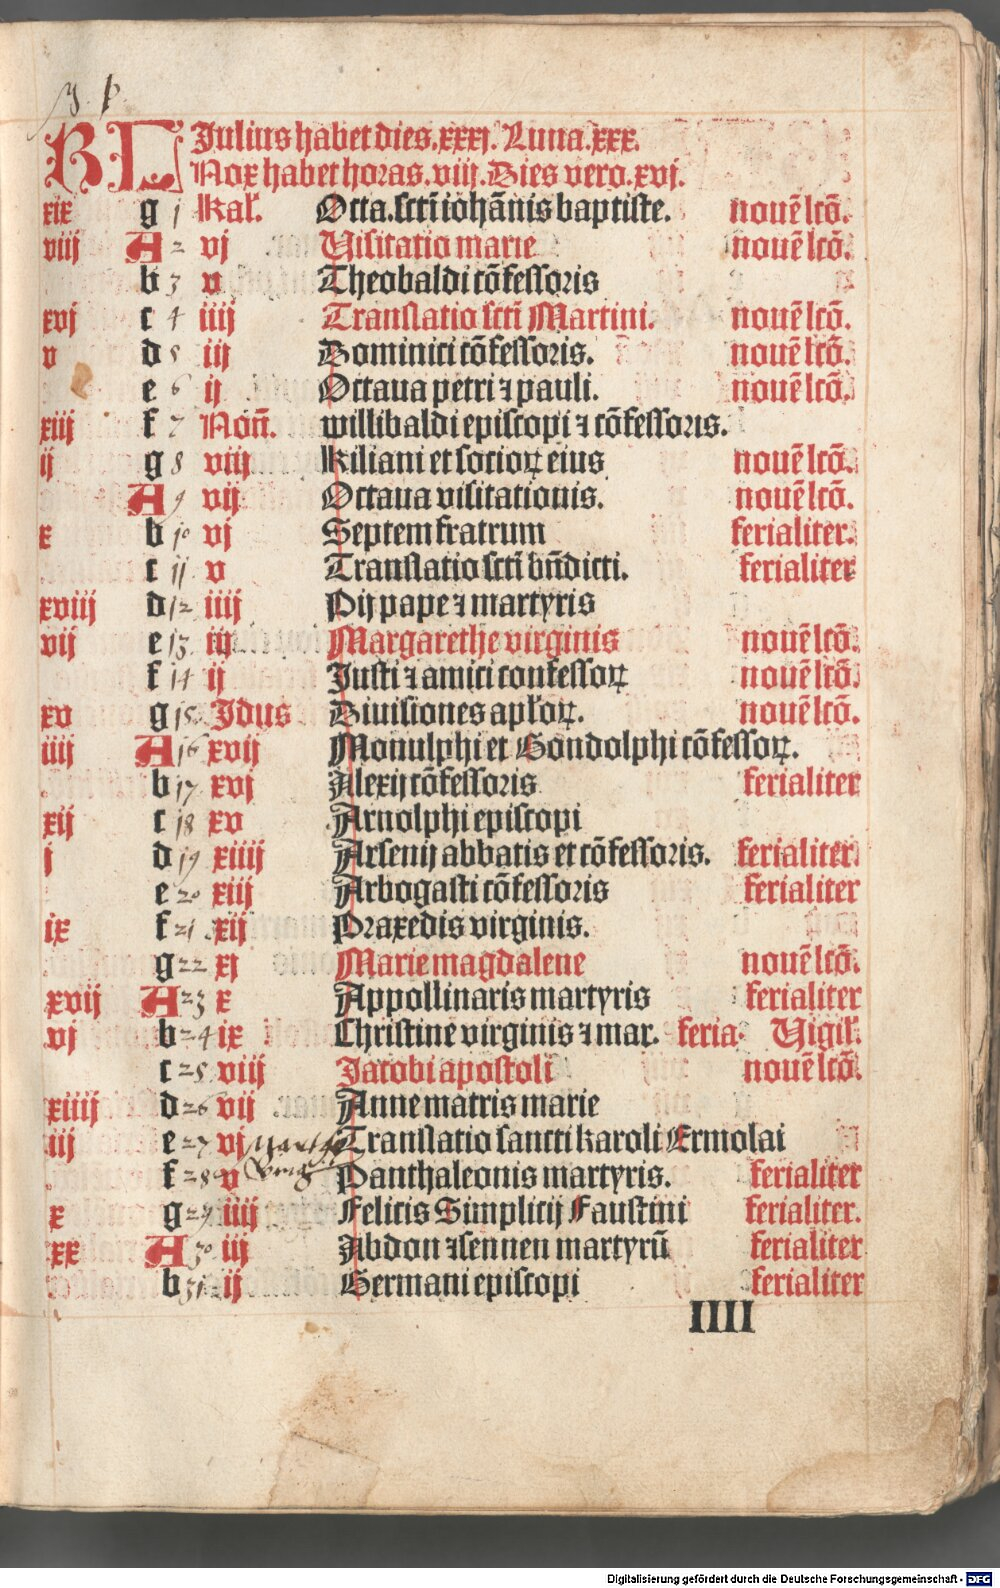 KL Julius habet dies.xxxj. Luna.xxx.
Nox habet horas.viij.Dies vero.xvj.
xix g 1 kal̄. Octa.scti iohānis baptiste. nouē lcō.
viij A 2 vj Visitatio marie nouē lcō.
b 3 v Theobaldi cōfessoris
xvj c 4 iiij Translatio scti Martini. nouē lcō.
v d 5 iij Dominici cōfessoris. nouē lcō.
e 6 ij Octaua petri ⁊ pauli. nouē lcō.
xiij f 7 Non̄. willibaldi episcopi ⁊ cōfessoris.
ij g 8 viij kiliani et socioꝝ eius nouē lcō.
A 9 vij Octaua visitationis. nouē lcō.
x b 10 vj Septem fratrum ferialiter.
c 11 v Translatio scti bn̄dicti. ferialiter
xviij d 12 iiij Pij pape ⁊ martyris
vij e 13 iij Margarethe virginis nouē lcō.
f 14 ij Justi ⁊ amici confessoꝝ nouē lcō.
xv g 15 Jdus Diuisiones apl̄oꝝ. nouē lcō.
iiij A 16 xvij Monulphi et Gondolphi cōfessoꝝ.
b 17 xvj Alexij cōfessoris ferialiter
xij c 18 xv Arnolphi episcopi
j d 19 xiiij Arsenij abbatis et cōfessoris. ferialiter.
e 20 xiij Arbogasti cōfessoris ferialiter
ix f 21 xij Praxedis virginis.
g 22 xj Marie magdalene nouē lcō.
xvij A 23 x Appollinaris martyris ferialiter
vj b 24 ix Christine virginis ⁊ mar. feria. Vigil̄.
c 25 viij Jacobi apostoli nouē lcō.
xiiij d 26 vij Anne matris marie
iij e 27 vj Translatio sancti karoli Ermolai
f 28 v Panthaleonis martyris. ferialiter
x g 29 iiij Felicis Simplicij Faustini ferialiter.
xx A 30 iij Abdon ⁊ sennen martyrū ferialiter
b 31 ij Germani episcopi ferialiter
IIII
Digitalisierung gefördert durch die Deutsche Forschungsgemeinschaft - DFG